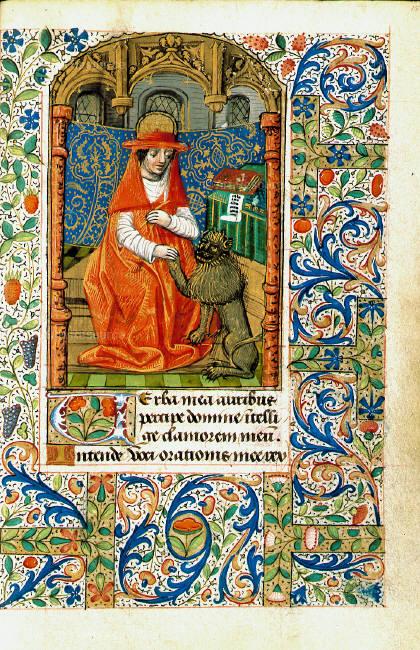 Verba mea auribus
percipe domine intelli
ge clamorem meu.
Intende voci orationis mee rex